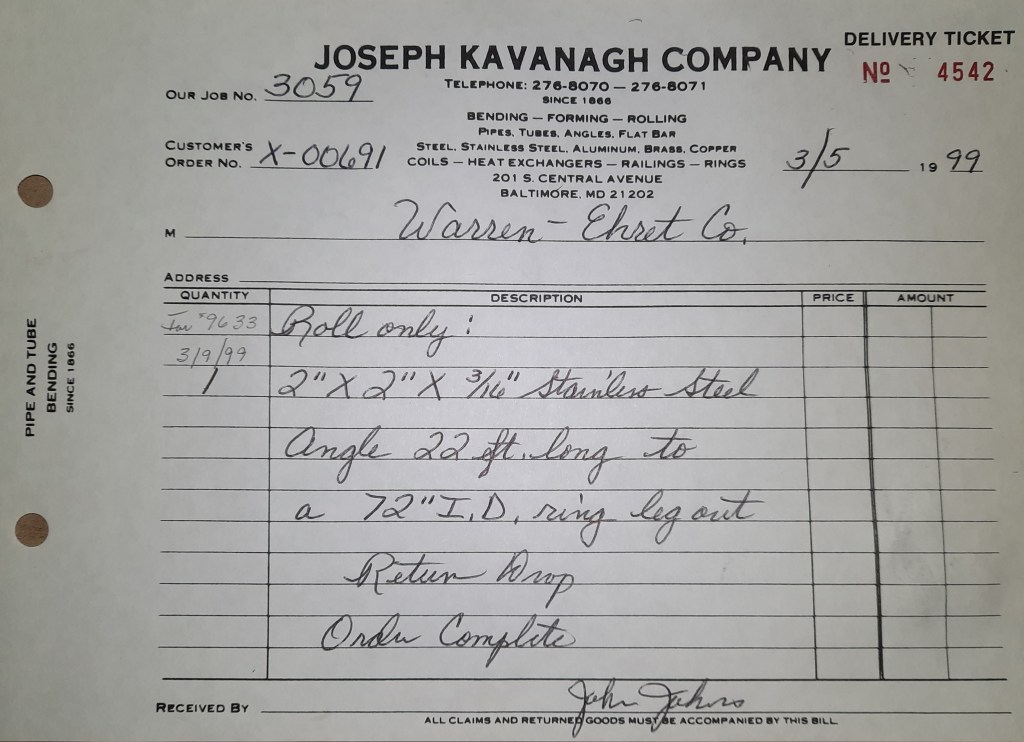 DELIVERY TICKET
JOSEPH KAVANAGH COMPANY
Nº 4542
OUR JOB NO. 3059
TELEPHONE: 276-8070 — 276-8071
SINCE 1866
BENDING — FORMING — ROLLING
PIPES, TUBES, ANGLES, FLAT BAR
STEEL, STAINLESS STEEL, ALUMINUM, BRASS, COPPER
CUSTOMER'S
ORDER NO. X-00691
COILS — HEAT EXCHANGERS — RAILINGS — RINGS
3/5 1999
201 S. CENTRAL AVENUE
BALTIMORE, MD 21202
M Warren-Ehret Co.
ADDRESS
QUANTITY DESCRIPTION PRICE AMOUNT
#9633 Roll only:
3/9/99
1 2" X 2" X 3/16" Stainless Steel
Angle 22 ft. long to
a 72" I.D. ring leg out
Return Drop
Order Complete
RECEIVED BY John
ALL CLAIMS AND RETURNED GOODS MUST BE ACCOMPANIED BY THIS BILL
PIPE AND TUBE
BENDING
SINCE 1866